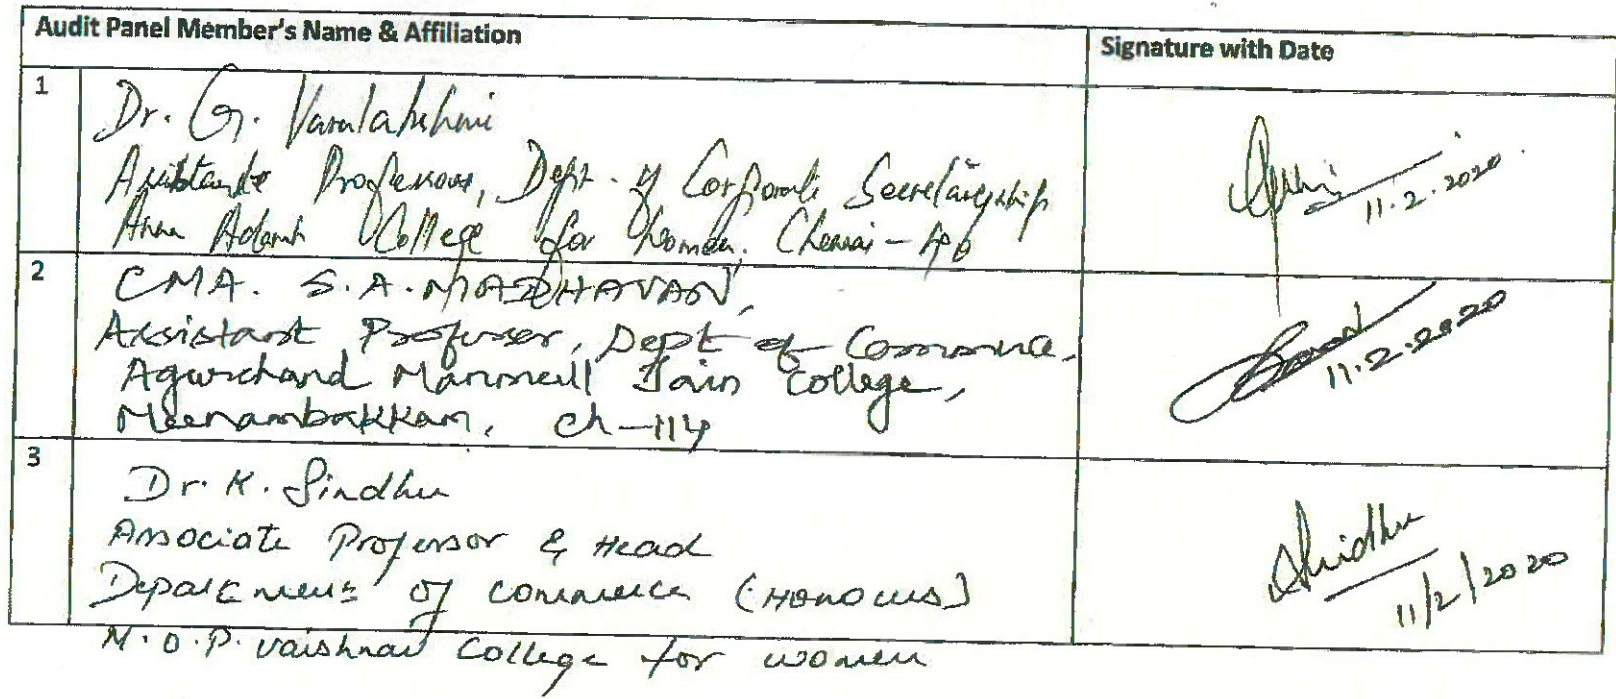 Audit Panel Member's Name & Affiliation
Signature with Date
1
Dr. G. Varalakshmi
Assistante Professor, Dept. of Corporate Secretaryship
Anna Adarsh College for Women, Chennai-40
11.2.2020
2
CMA. S.A. MADHAVAN,
Assistant Professor, Dept of Commerce,
Agurchand Manmull Jain College,
Meenambakkam, Ch-114
11.2.2020
3
Dr. K. Sindhu
Associate Professor & Head
Department of Commerce (Honours)
M.O.P. Vaishnav College for Women
Sindhu
11/2/2020